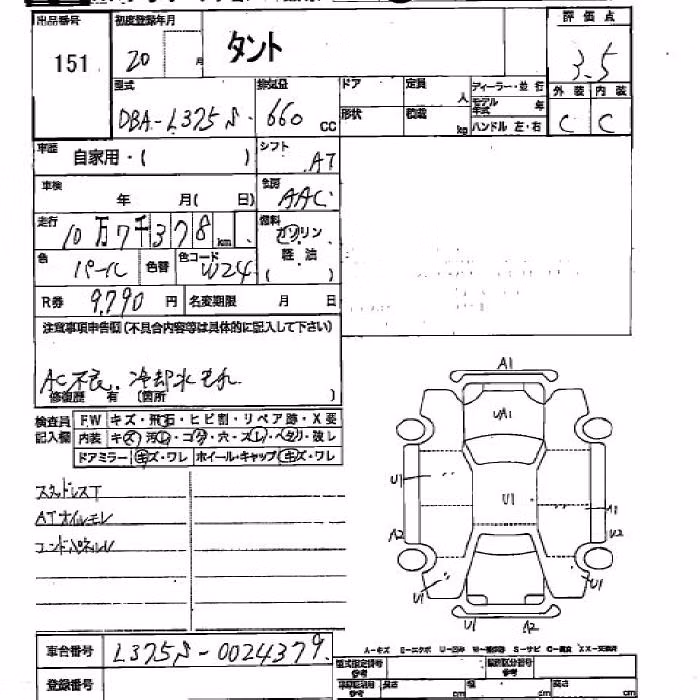 出品番号 初度登録年月 評価点
151 20 月 タント 3.5
型式 排気量 ドア 定員 人 ディーラー・並行 外装 内装
DBA-L375S 660 cc 形状 積載 kg モデル年式 年 ハンドル 左・右 C C
車歴 自家用・( ) シフト AT
車検 年 月( 日) 冷房 AAC
走行 10万7千378 km 燃料 ガソリン
軽油
( )
色 パール 色替 色コード W24
R券 9,790 円 名変期限 月 日
注意事項申告欄(不具合内容等は具体的に記入して下さい)
AC不良. 冷却水モレ
修復歴 有 (箇所 )
検査員 FW キズ・飛石・ヒビ割・リペア跡・X要
記入欄 内装 キズ・汚レ・コゲ・穴・スレ・ヘタリ・強レ
ドアミラー キズ・ワレ ホイール・キャップ キズ・ワレ
スタッドレスT
ATオイルモレ
エンドパネルU
A1
UA1
U1
U1 A1
A2 U2
U1 U1
U1 A2
車台番号 L375S-0024379
A-キズ E-エクボ U-凹み W-補修跡 S-サビ C-腐食 XX-交換済
登録番号 型式指定番号 類別区分番号
参考 長さ cm 幅 cm 高さ cm